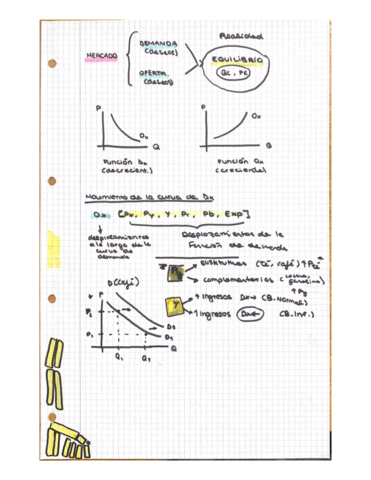 Realidad
MERCADO
DEMANDA
(deseos)
OFERTA
(deseos)
EQUILIBRIO
QE, PE
P
Dx
Q
P
Ox
Q
Función Dx
(decrecient.)
Función Ox
(creciente)
Movimiento de la curva de Dx
Dx [Px, Py, Y, Pr, Pb, Exp]
desplazamientos
a lo largo de la
curva de
demanda
Desplazamientos de la
Función de demanda
sustitutivos (té, café)
complementarios (coche, gasolina)
D (café)
P
P2
P1
Q1
Q2
Q
D2
D1
Y
↑ ingresos Dx→ (B. Normal)
↑ ingresos Dx← (B. Inf.)